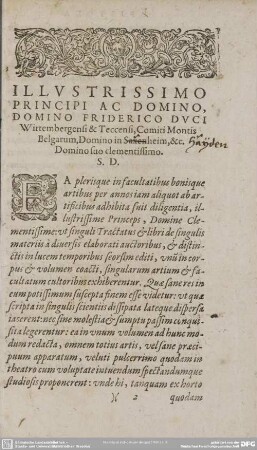 ILLVSTRISSIMO
PRINCIPI AC DOMINO,
DOMINO FRIDERICO DVCI
Wirtembergensi & Teccensi, Comiti Montis
Belgarum, Domino in heim, &c. Häyden
Domino suo clementissimo.
S. D.
EA plerisque in facultatibus bonisque
artibus per annos iam aliquot ab ar-
tificibus adhibita fuit diligentia, il-
lustrissime Princeps, Domine Cle-
mentissime: vt singuli Tractatus & libri de singulis
materiis à diuersis elaborati auctoribus, & distin-
ctis in lucem temporibus seorsim editi, vnũ in cor-
pus & volumen coacti, singularum artium & fa-
cultatum cultoribus exhiberentur. Quæ sane res in
eum potissimum suscepta finem esse videtur: vt quæ
scripta in singulis scientiis dissipata lateque dispersa
iacerent: nec sine molestia & sumptu passim conqui-
sita legerentur: ea in vnum volumen ad hunc mo-
dum redacta, omnem totius artis, velsane præci-
puum apparatum, veluti pulcerrimo quodam in
theatro cum voluptate intuendum spectandumque
studiosis proponerent: vnde hi, tanquam ex horto
2 quodam